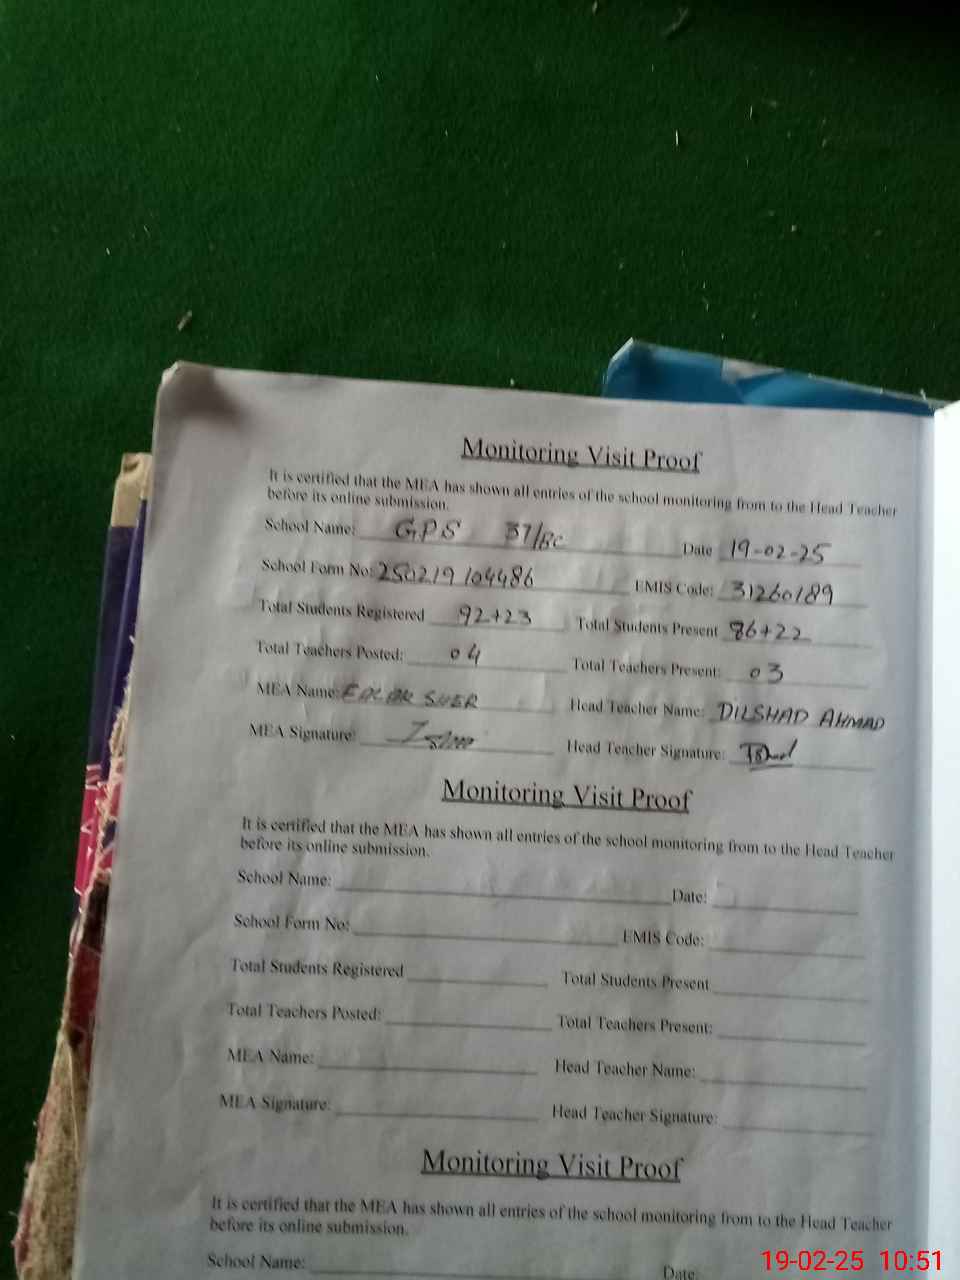 Monitoring Visit Proof
It is certified that the MEA has shown all entries of the school monitoring from to the Head Teacher
before its online submission.
School Name: GPS 37/BC Date 19-02-25
School Form No: 250219104486 EMIS Code: 31260189
Total Students Registered 92+23 Total Students Present 86+22
Total Teachers Posted: 04 Total Teachers Present: 03
MEA Name: SHER Head Teacher Name: DILSHAD AHMAD
MEA Signature: Head Teacher Signature:
Monitoring Visit Proof
It is certified that the MEA has shown all entries of the school monitoring from to the Head Teacher
before its online submission.
School Name: Date:
School Form No: EMIS Code:
Total Students Registered Total Students Present
Total Teachers Posted: Total Teachers Present:
MEA Name: Head Teacher Name:
MEA Signature: Head Teacher Signature:
Monitoring Visit Proof
It is certified that the MEA has shown all entries of the school monitoring from to the Head Teacher
before its online submission.
School Name: Date:
19-02-25 10:51